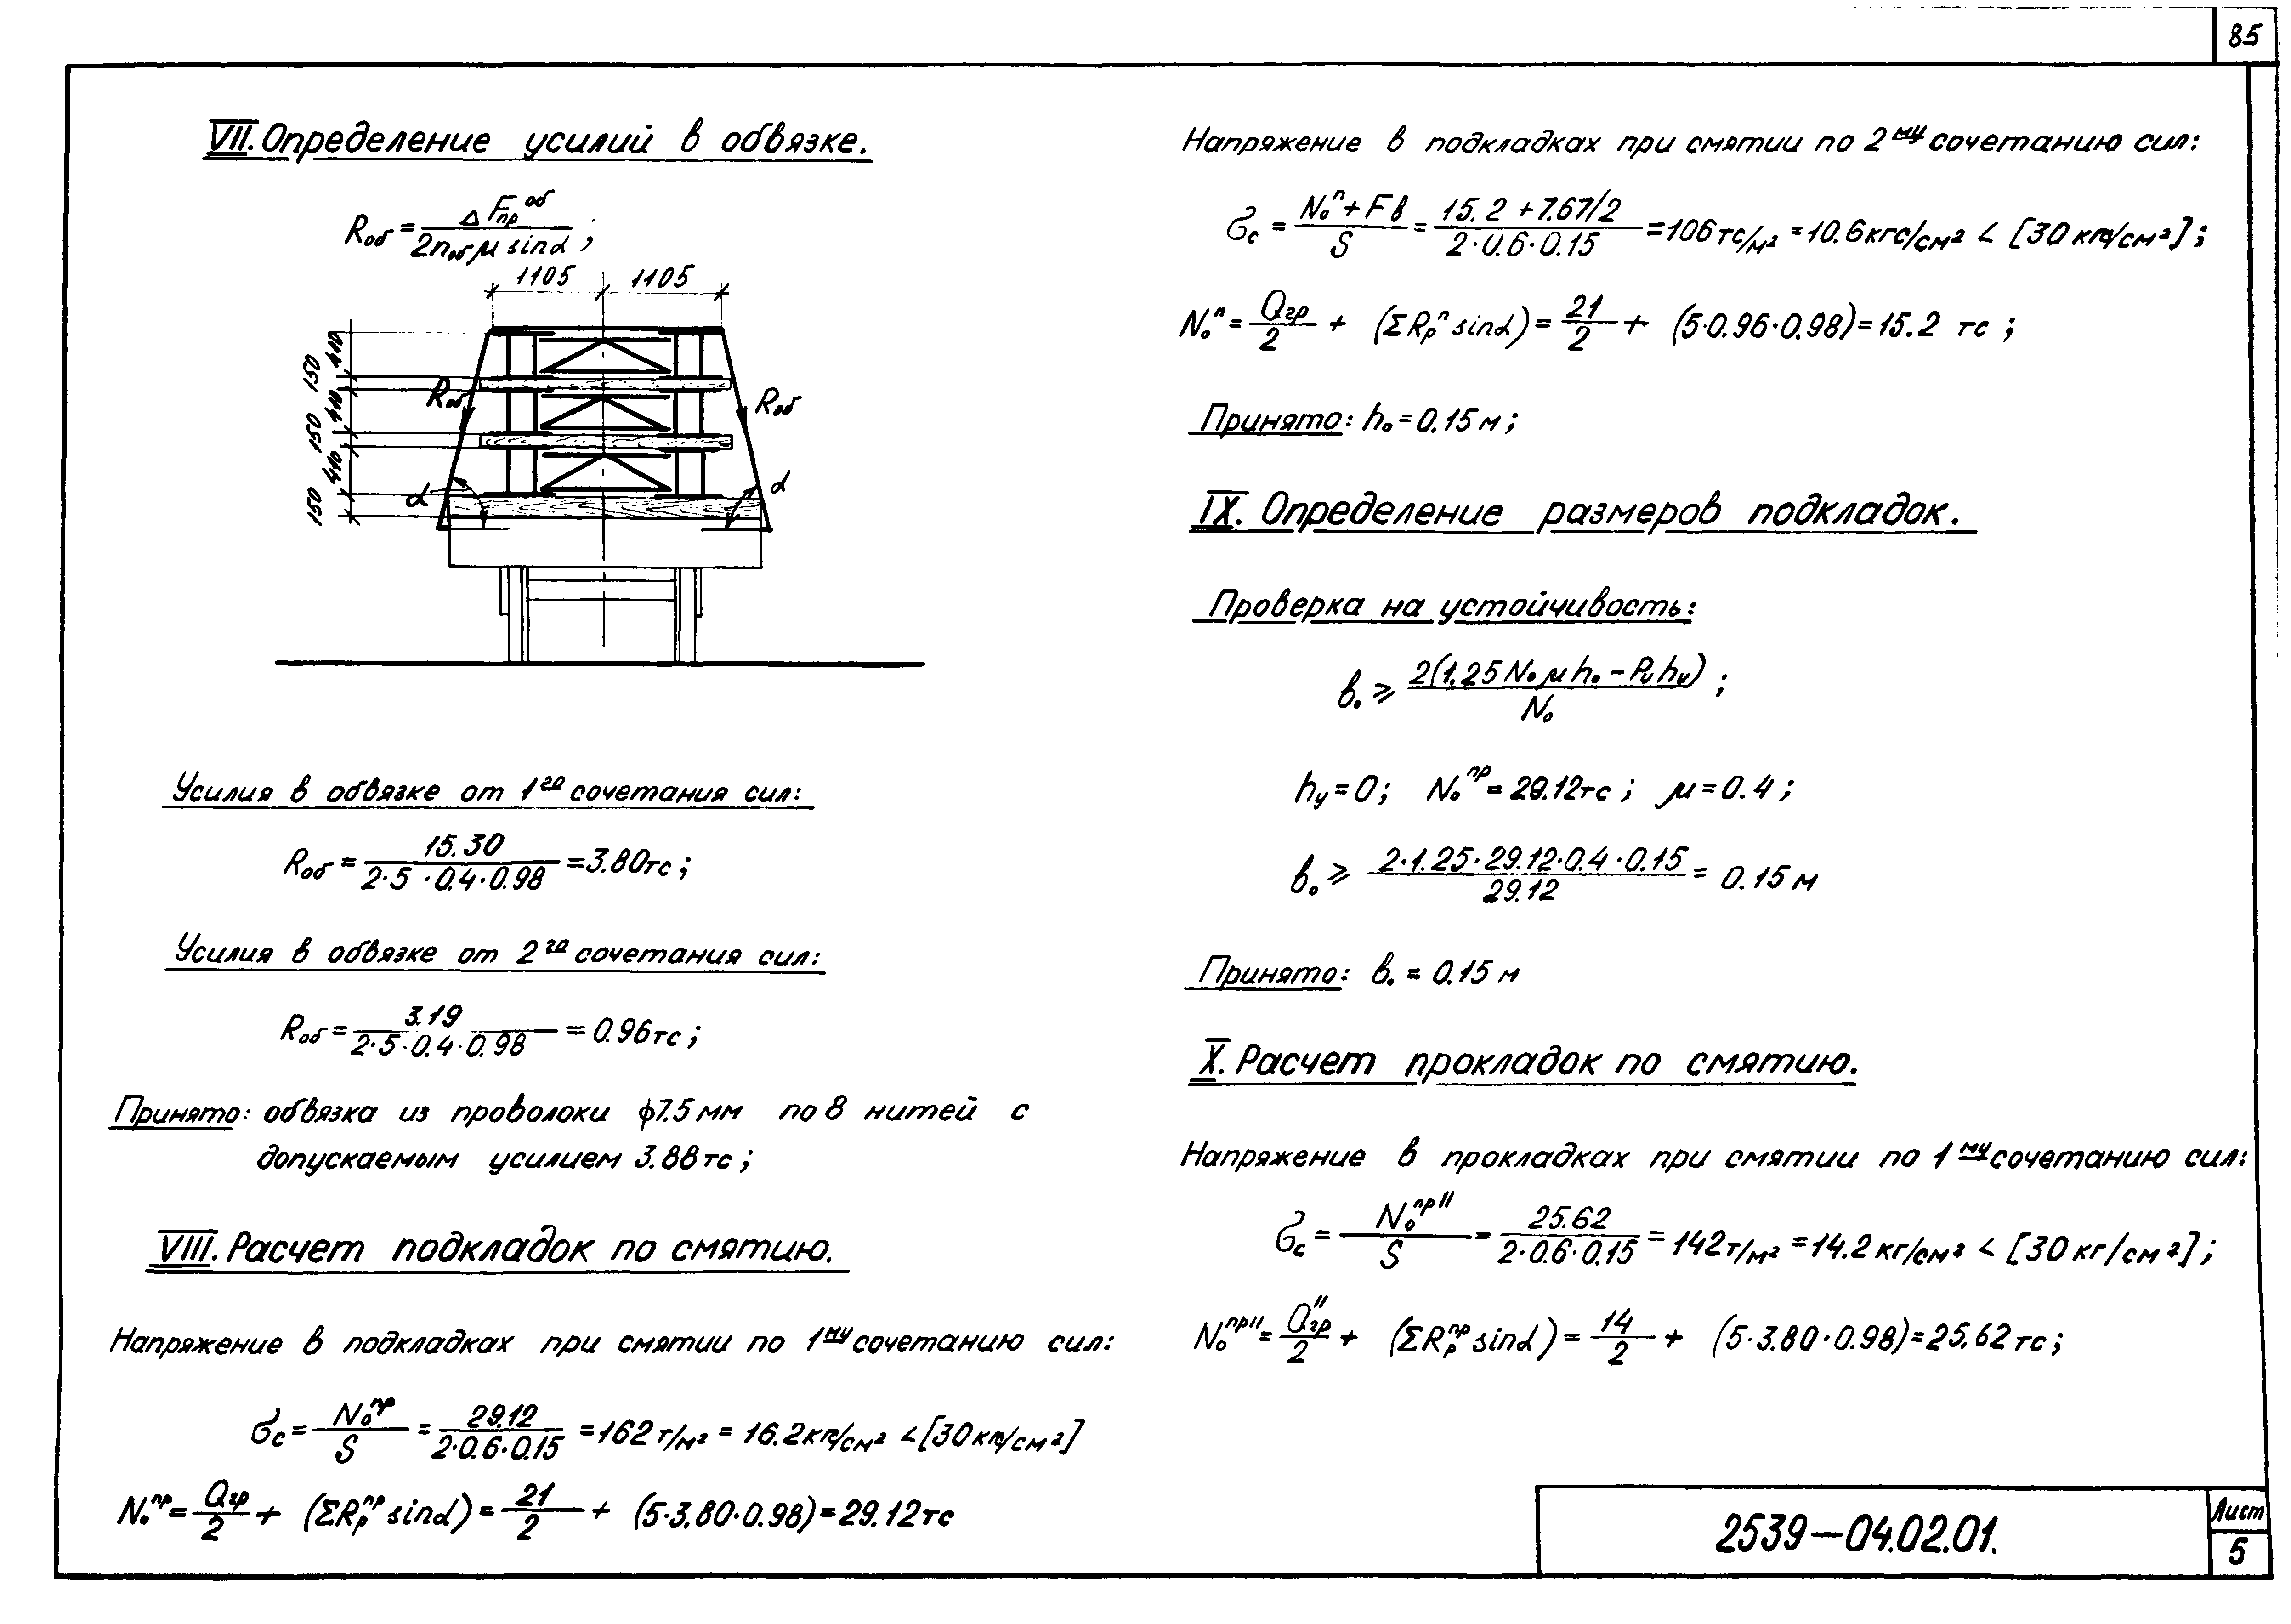 85
VII. Определение усилий в обвязке.
Rоб = ΔFпр^об / 2nоб μ sinα ;
1105 1105
410
150
410
150
410
150
Rоб Rоб
α α
Усилия в обвязке от 1го сочетания сил:
Rоб = 15.30 / 2·5·0.4·0.98 = 3.80тс ;
Усилия в обвязке от 2го сочетания сил:
Rоб = 3.19 / 2·5·0.4·0.98 = 0.96тс ;
Принято: обвязка из проволоки ϕ7.5мм по 8 нитей с
допускаемым усилием 3.88тс ;
VIII. Расчет подкладок по смятию.
Напряжение в подкладках при смятии по 1му сочетанию сил:
σс = N₀^пр / S = 29.12 / 2·0.6·0.15 = 162т/м² = 16.2кг/см² < [30кг/см²]
N₀^пр = Qгр / 2 + (ΣRр^пр sinα) = 21 / 2 + (5·3.80·0.98) = 29.12тс
Напряжение в подкладках при смятии по 2му сочетанию сил:
σс = N₀^п + Fв / S = 15.2 + 7.67/2 / 2·0.6·0.15 = 106тс/м² = 10.6кгс/см² < [30кгс/см²] ;
N₀^п = Qгр / 2 + (ΣRр^п sinα) = 21 / 2 + (5·0.96·0.98) = 15.2 тс ;
Принято: h₀ = 0.15м ;
IX. Определение размеров подкладок.
Проверка на устойчивость:
в₀ ⩾ 2(1.25N₀μh₀ - Pуhу) / N₀ ;
hу = 0 ; N₀^пр = 29.12тс ; μ = 0.4 ;
в₀ ⩾ 2·1.25·29.12·0.4·0.15 / 29.12 = 0.15м
Принято: в₀ = 0.15 м
X. Расчет прокладок по смятию.
Напряжение в прокладках при смятии по 1му сочетанию сил:
σс = N₀^пр II / S = 25.62 / 2·0.6·0.15 = 142т/м² = 14.2кг/см² < [30кг/см²] ;
N₀^пр II = Q"гр / 2 + (ΣRр^пр sinα) = 14 / 2 + (5·3.80·0.98) = 25.62тс ;
2539—04.02.01.
Лист
5